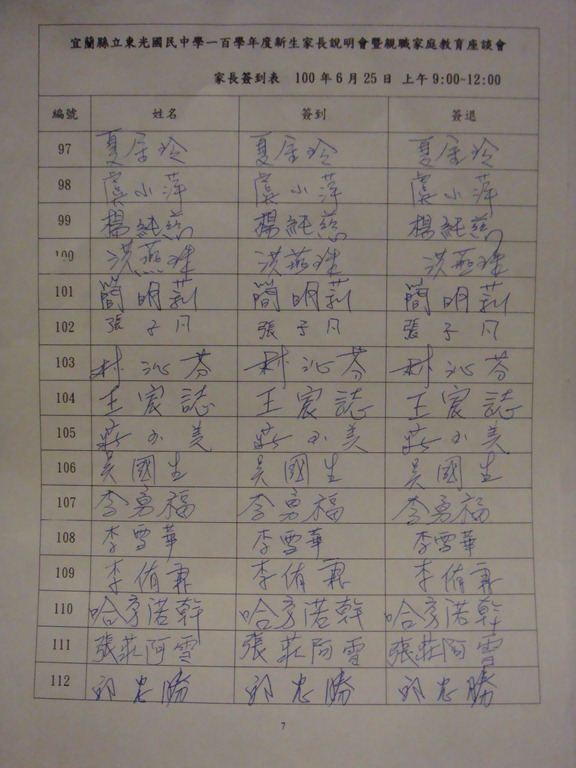 宜蘭縣立東光國民中學一百學年度新生家長說明會暨親職家庭教育座談會
家長簽到表 100年6月25日 上午9:00~12:00
編號 姓名 簽到 簽退
97 夏 玲 夏 玲 夏 玲
98 虞小萍 虞小萍 虞小萍
99 楊純慈 楊純慈 楊純慈
100 洪燕 洪燕 洪燕
101 簡明莉 簡明莉 簡明莉
102 張子凡 張子凡 張子凡
103 林沁芬 林沁芬 林沁芬
104 王宸誌 王宸誌 王宸誌
105 蔣小美 蔣小美 蔣小美
106 吳國生 吳國生 吳國生
107 李勇福 李勇福 李勇福
108 李雪華 李雪華 李雪華
109 李侑霖 李侑霖 李侑霖
110 哈勇諾幹 哈勇諾幹 哈勇諾幹
111 張莊阿雪 張莊阿雪 張莊阿雪
112 邱忠勝 邱忠勝 邱忠勝
7